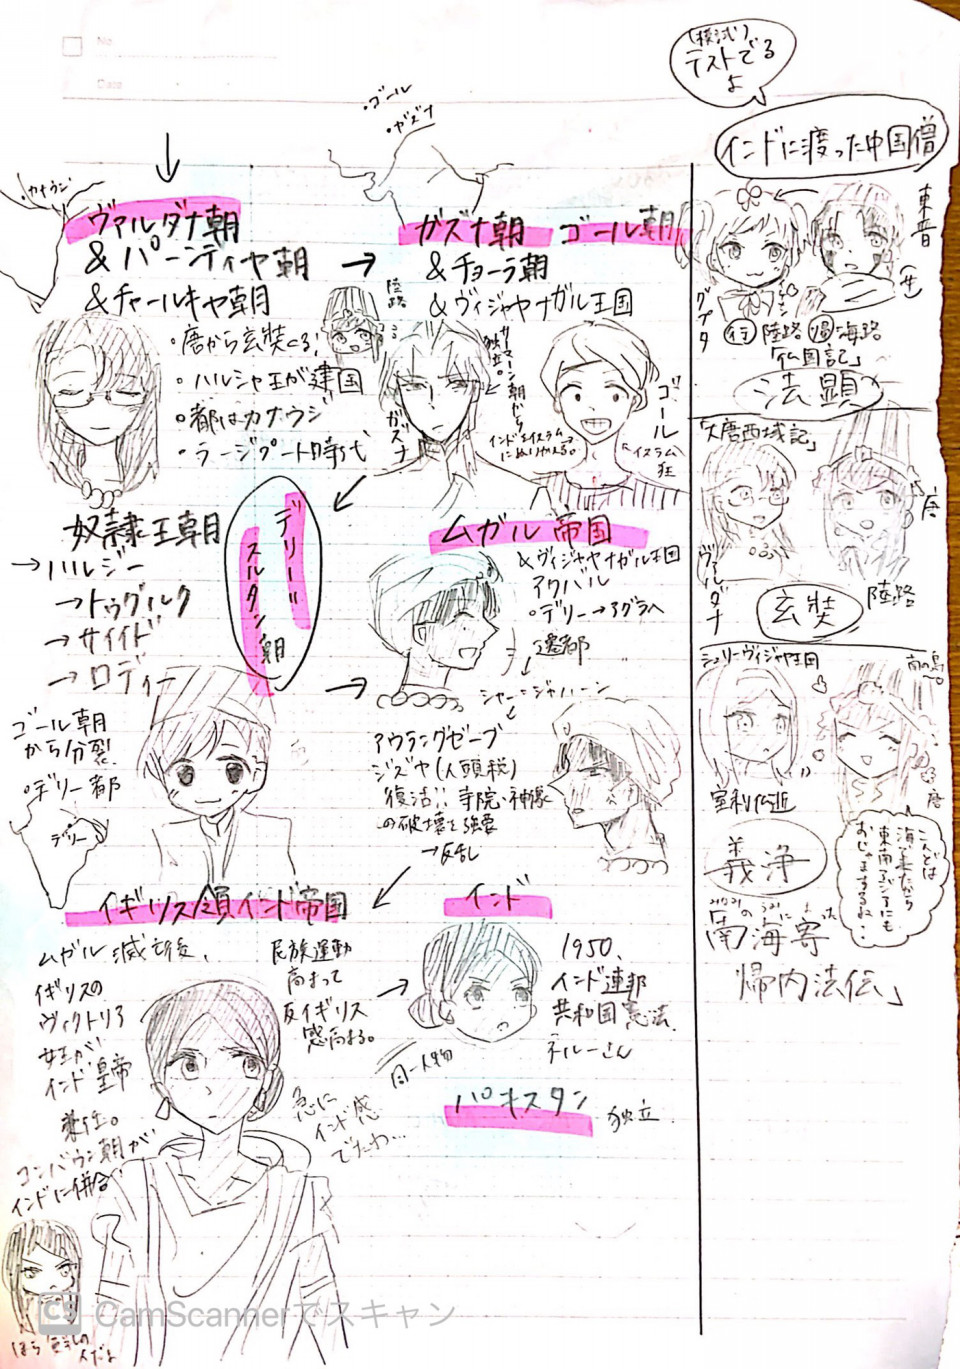 No
Date
・ゴール
・ガズナ
カナウジ
ヴァルダナ朝
&パーンディヤ朝
&チャールキヤ朝
・唐から玄奘くる!
・ハルシャ王が建国
・都はカナウジ
・ラージプート時代
陸路
ガズナ朝 ゴール朝
&チョーラ朝
&ヴィジャヤナガル王国
サーマーン朝から
独立。
ガズナ
インドをイスラム
にぬりかえる。
ゴール
イスラム
狂
奴隷王朝
→ハルジー
→トゥグルク
→サイイド
→ロディー
デリー=
スルタン朝
ゴール朝
から分裂
・デリー都
デリー
ムガル帝国
&ヴィジャヤナガル王国
アクバル
・デリー→アグラへ
遷都
シャー=ジャハーン
アウラングゼーブ
ジズヤ(人頭税)
復活!! 寺院・神像
の破壊を強要
→反乱
イギリス領インド帝国
ムガル滅亡後、
イギリスの
ヴィクトリア
女王が
インド皇帝
兼任。
コンバウン朝が
インドに併合
民族運動
高まって
反イギリス
感高まる。
同一人物
急に
インド感
でたわ…
インド
1950、
インド連邦
共和国憲法
ネルーさん
パキスタン
独立
(模試)
テストでる
よ
インドに渡った中国僧
東晋
グプタ
行 陸路 帰 海路
「仏国記」
法顕
「大唐西域記」
唐
ヴァルダナ
玄奘
陸路
シュリーヴィジャヤ王国
室利仏逝
唐
こんどは
海で来たから
東南アジアにも
おじゃまするね…
義浄
「南海寄
帰内法伝」
CS CamScannerでスキャン